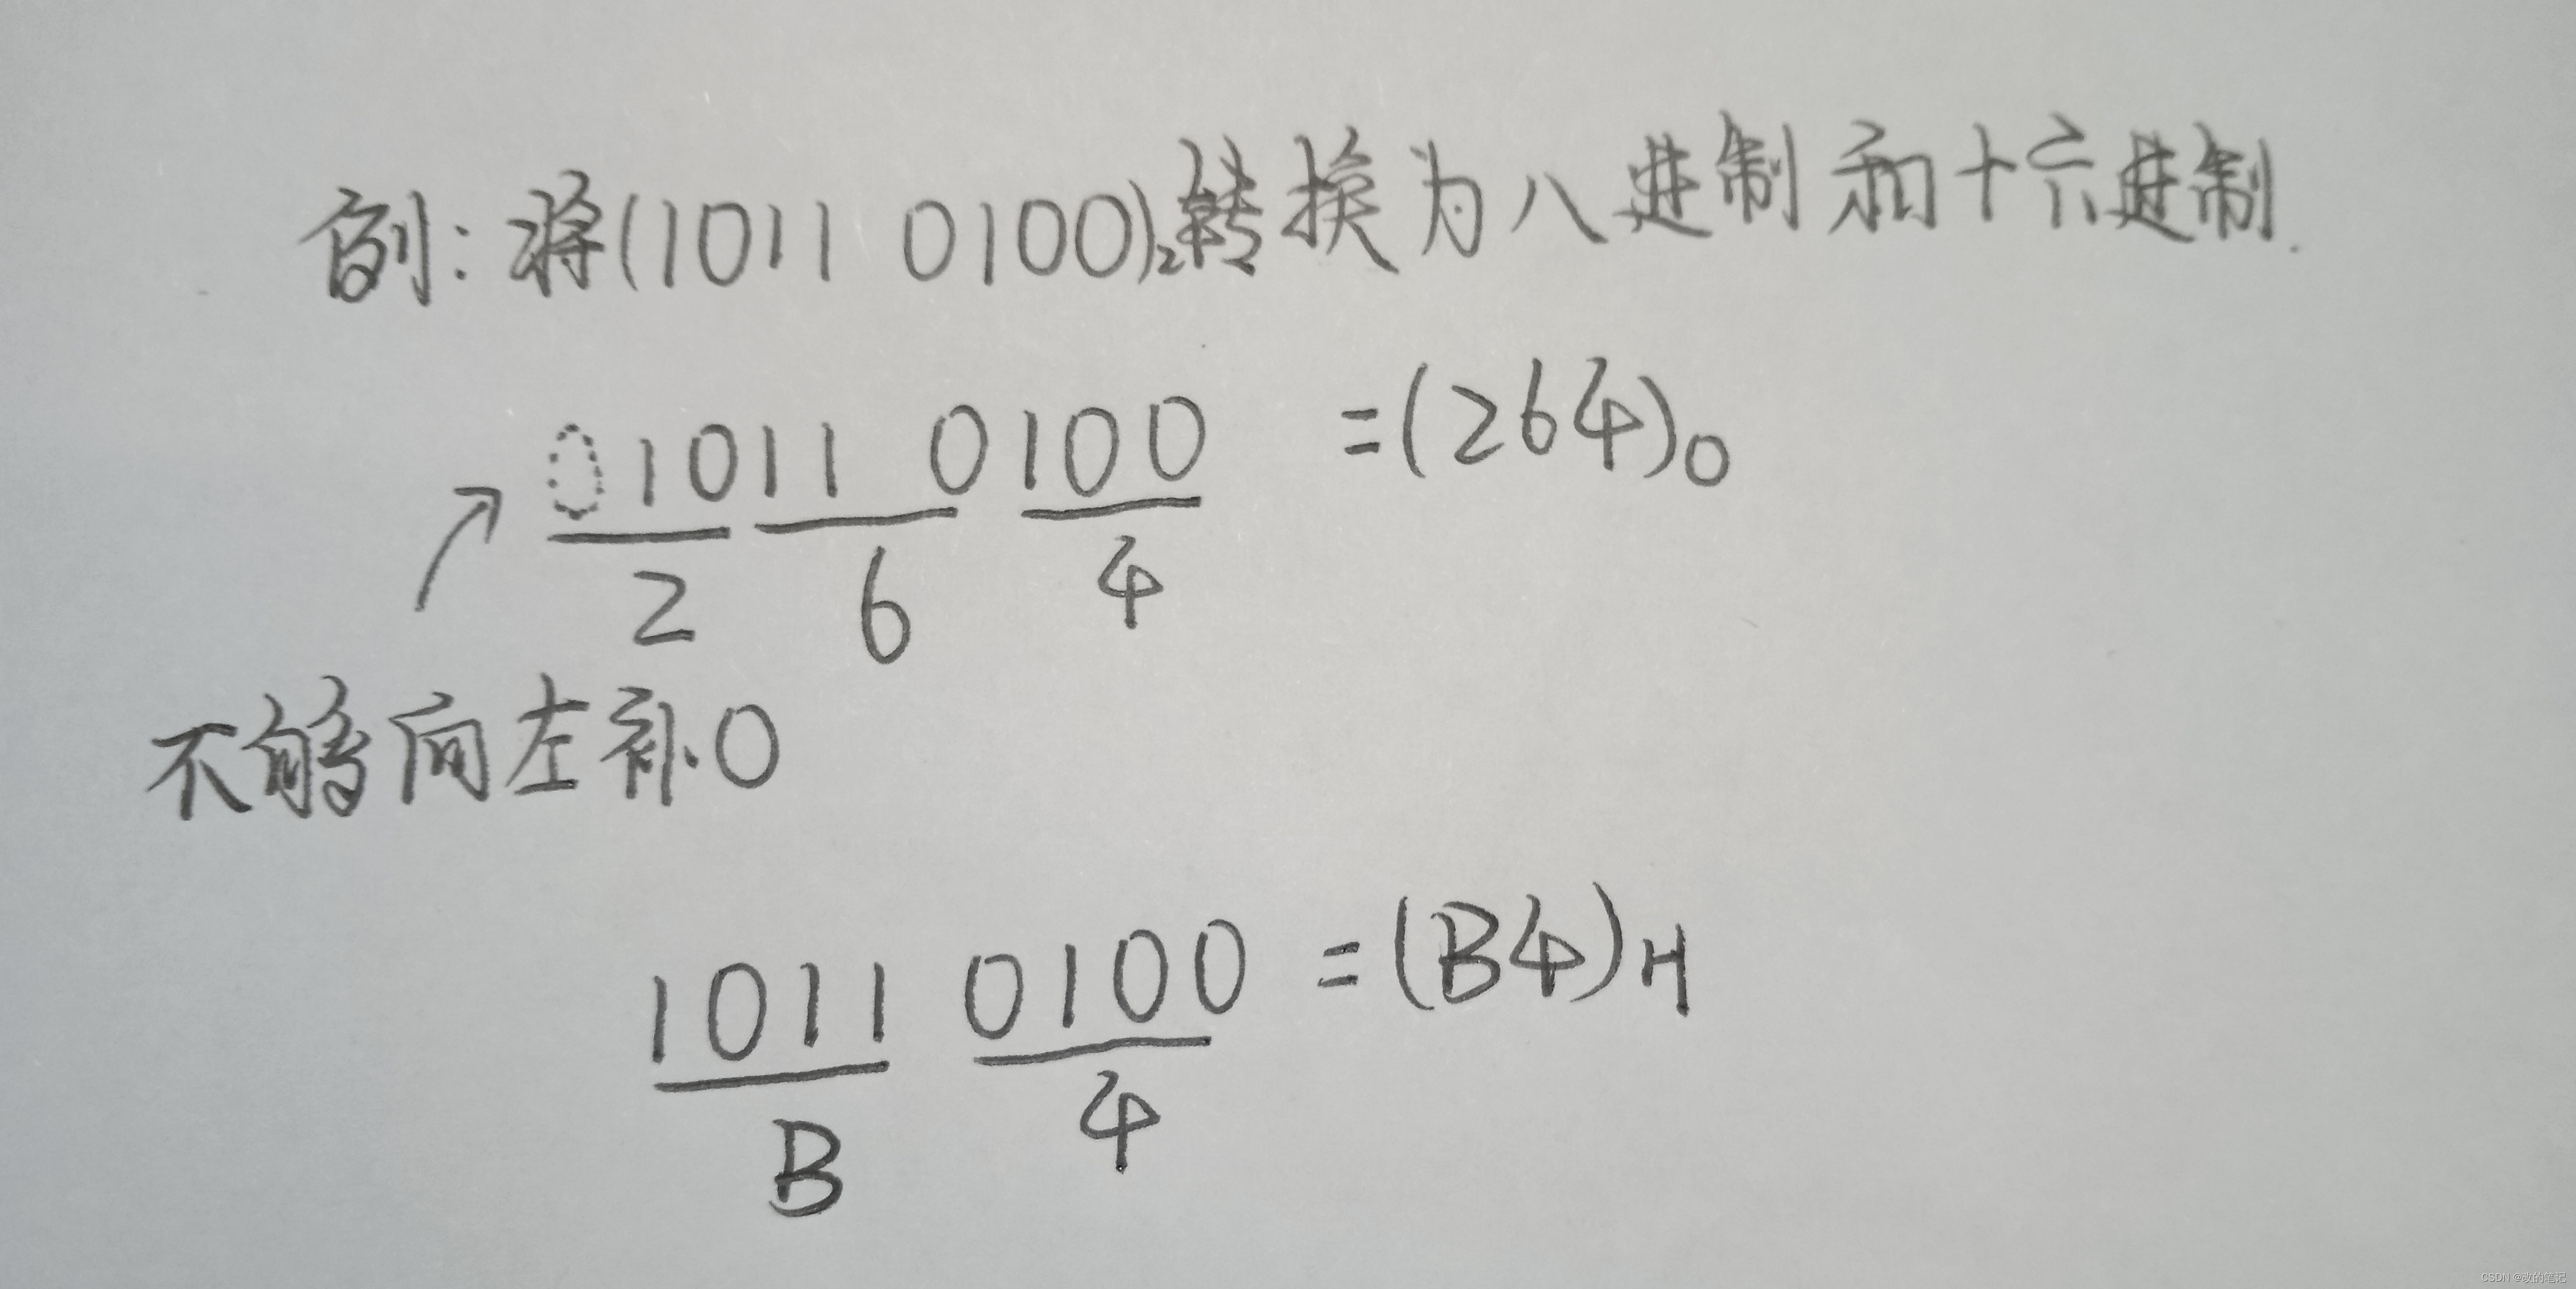 例：将(1011 0100)₂转换为八进制和十六进制.
01011 0100 =(264)O
2 6 4
不够向左补0
1011 0100 =(B4)H
B 4
CSDN @改的笔记